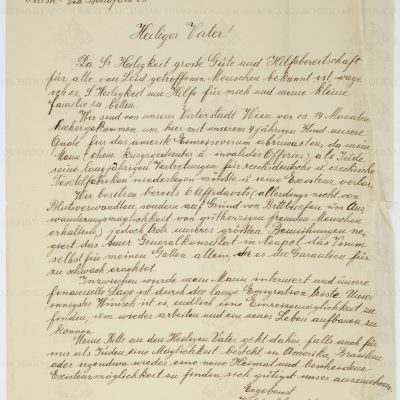 Triest - Via
Heiliger Vater!
Da Sr Heiligkeit grosse Güte und Hilfsbereitschaft
für alle von Leid getroffenen Menschen bekannt ist, wage
ich es, S. Heiligkeit um Hilfe für mich und meine kleine
Familie zu bitten.
Wir sind von unserer Vaterstadt Wien vor ca. 14 Monaten
hierhergekommen, um hier mit unserem 4 jährigen Kind unsere
Quote für das amerik. Einreisevisum abzuwarten, da mein
Mann (ehem. Kriegs u. invalider Offizier) als Jude
seine langjährigen Vertretungen für reichsdeutsche u. čechische
Textilfabriken niederlegen müsste u. seine Existenz verlor.
Wir besitzen bereits 6 Affidavits, allerdings nicht von
Blutsverwandten, sondern auf Grund von Bittbriefen um Aus-
wanderungsmöglichkeit von gutherzigen fremden Menschen
erhalten, jedoch trotz unserer grössten Bemühungen ne-
giert das Amer. Generalkonsulat in Neapel das Visum
selbst für meinen Gatten allein, da es die Garantien für
zu schwach erachtet.
Inzwischen wurde mein Mann interniert und unsere
finanzielle Lage ist durch die lange Emigration trist. Unser
innigster Wunsch ist es, endlich eine Einreisemöglichkeit zu
finden, um wieder arbeiten und ein neues Leben aufbauen zu
können.
Meine Bitte an den Heiligen Vater geht dahin, falls auch für
uns als Juden eine Möglichkeit besteht in Amerika, Brasilien
oder irgendwo wieder eine neue Heimat und bescheidene
Existenzmöglichkeit zu finden, sich gütigst unser anzunehmen.
Ergebenst